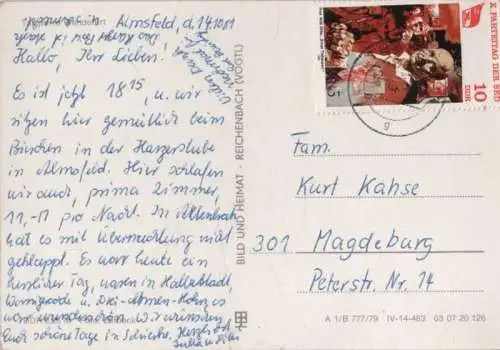 Almsfeld, d. 14.10.81
Hallo, Ihr Lieben!
Es ist jetzt 18 15, u. wir
sitzen hier gemütlich beim
Bierchen in der Harzerstube
in Almsfeld. Hier schlafen
wir auch, prima Zimmer,
11,-M pro Nacht. In Altenbrak
hat es mit Übernachtung nicht
geklappt. Es war heute ein
herrlicher Tag, waren in
Wernigerode u. Drei-Annen-Hohne, es
war wunderschön. Wir wünschen
Euch schöne Tage in Herzlichst
BILD UND HEIMAT · REICHENBACH (VOGTL)
X. PARTEITAG DER SED
10
DDR
Fam.
Kurt Kahse
301 Magdeburg
Peterstr. Nr. 14
A 1/B 777/79 IV-14-483 03 07 20 126